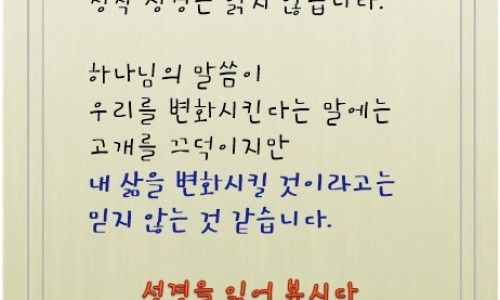 정작 성경은 읽지 않습니다.
하나님의 말씀이
우리를 변화시킨다는 말에는
고개를 끄덕이지만
내 삶을 변화시킬 것이라고는
믿지 않는 것 같습니다.
성경을 읽어 봅시다